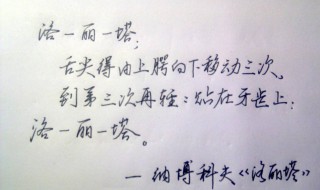 洛一丽一塔;
舌尖得由上腭向下移动三次,
到第三次再轻轻贴在牙齿上:
洛一丽一塔。
一纳博科夫《洛丽塔》